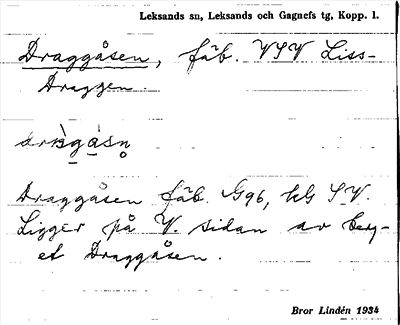 Leksands sn, Leksands och Gagnefs tg, Kopp. l.
Draggåsen, fäb. VSV Liss-
Draggen.
Draggåsen fäb. G96, kG SV.
Ligger på V. sidan av berg-
et Draggåsen.
Bror Lindén 1934